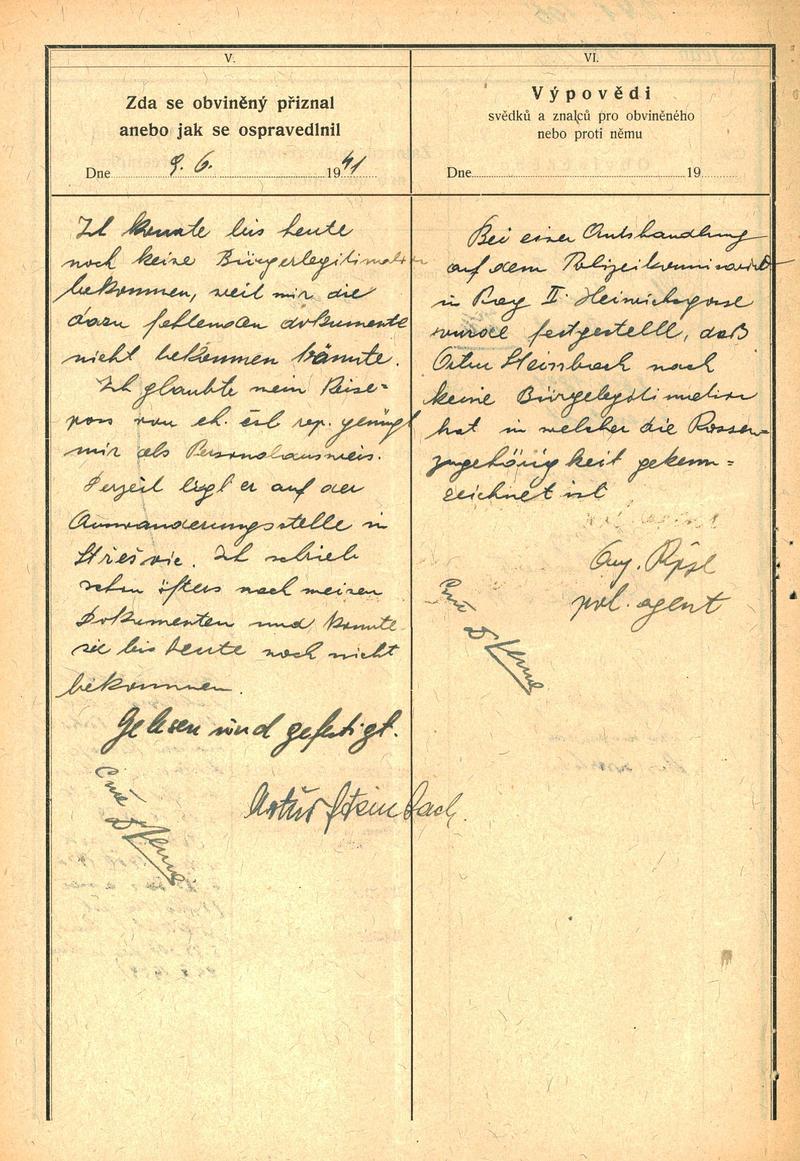 V.
Zda se obviněný přiznal
anebo jak se ospravedlnil
Dne 9. 6. 1941
Ich konnte bis heute
noch keine Bürgerlegitimation
bekommen, weil mir die
dazu fehlenden dokumente
nicht bekommen könnte.
Ich glaubte mein Reise=
pass von eh. čsl rep. genügt
mir als Personalausweis.
Derzeit liegt er auf der
Auswanderungsstelle in
Střešovic. Ich schrieb
schon öfters nach meinen
Dokumenten und konnte
sie bis heute noch nicht
bekommen.
Gelesen und gefertigt.
Artur Steinbach.
VI.
Výpovědi
svědků a znalců pro obviněného
nebo proti němu
Dne 19
Bei einer Amtshandlung
auf dem Polizeikommissariat
in Prag II. Heinrichsgasse
wurde festgestellt, daß
Artur Steinbach noch
keine Bürgelegitimation
hat in welcher die Rassen=
zugehörigkeit gekenn=
zeichnet ist
pol. agent